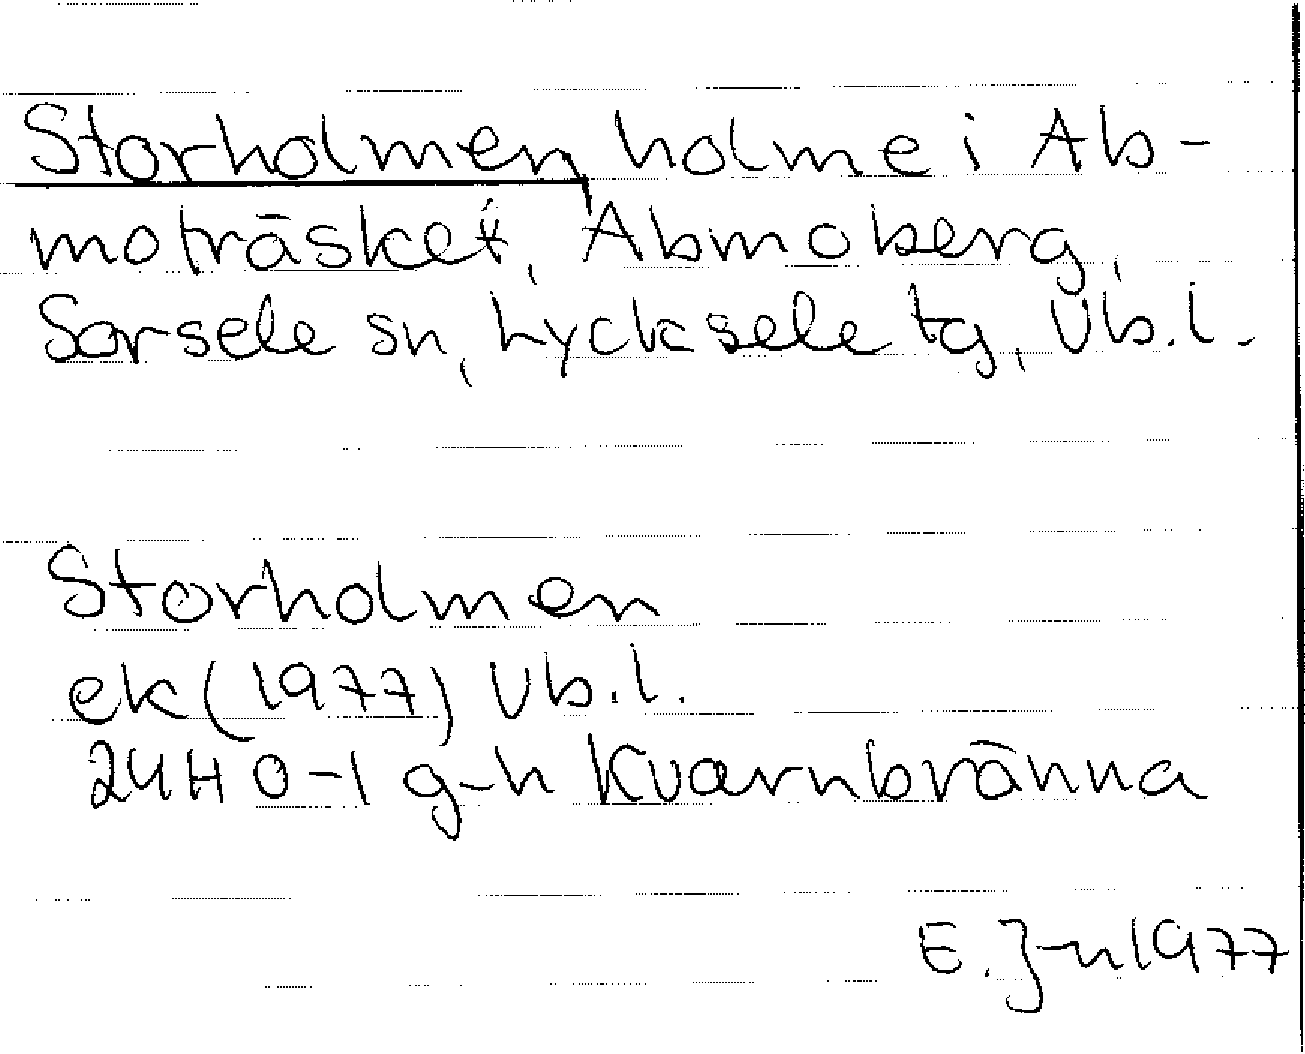 Storholmen, holme i Ab-
moträsket, Abmoberg,
Sorsele sn, Lycksele tg, Vb.l.
Storholmen
ek (1977) Vb.l.
24H 0-1 g-h Kvarnbränna
E. J-n 1977